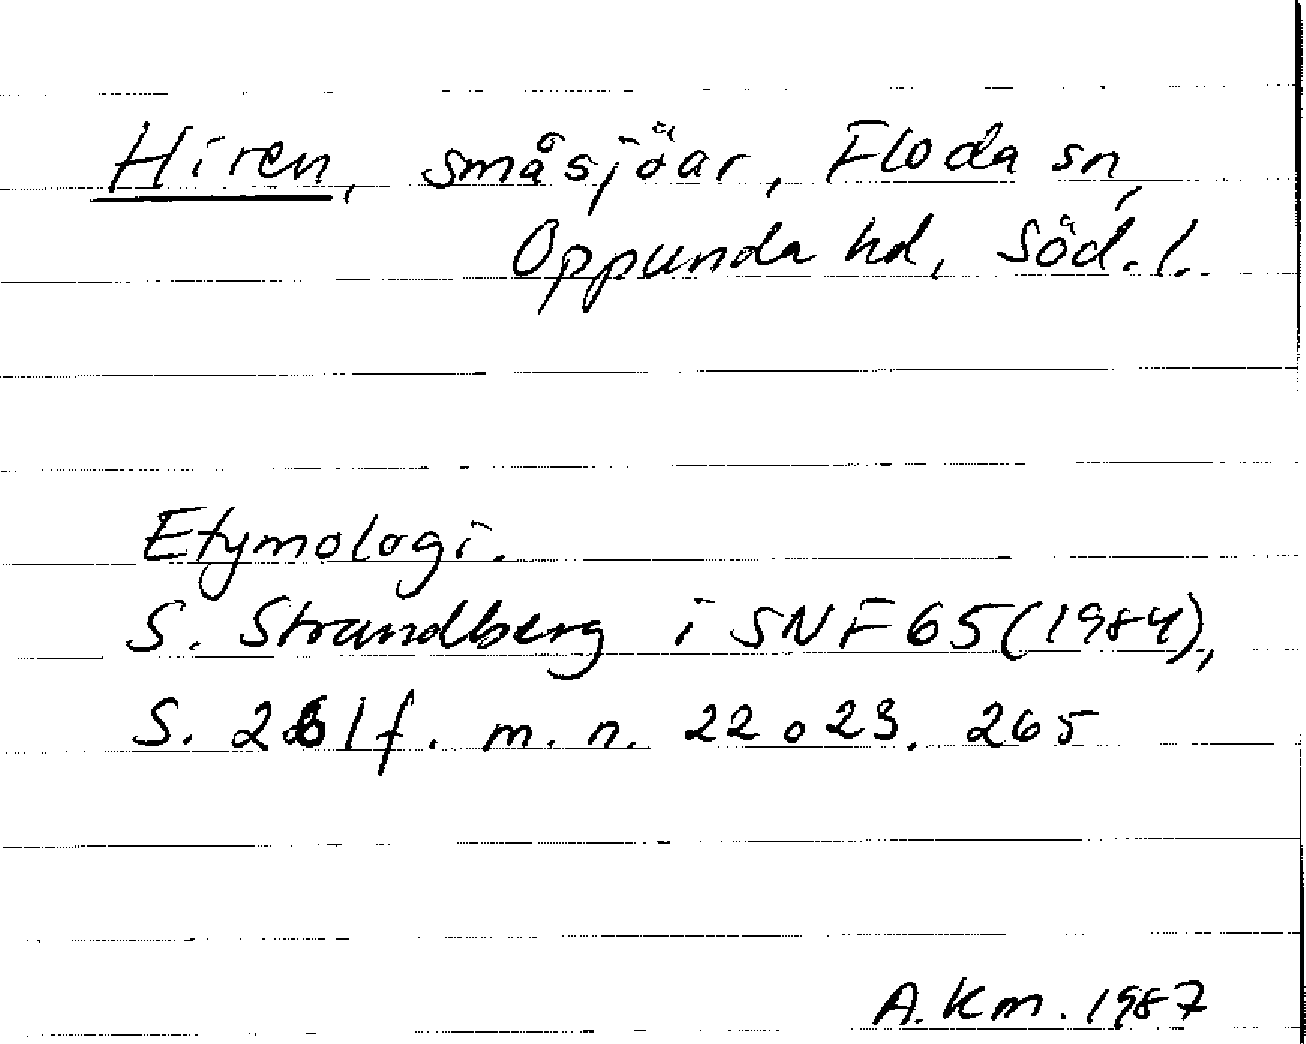 Hiren, småsjöar, Floda sn,
Oppunda hd, Söd. l.
Etymologi.
S. Strandberg i SNF 65 (1984),
S. 261 f. m. n. 22 o 23. 265
A. Km. 1987